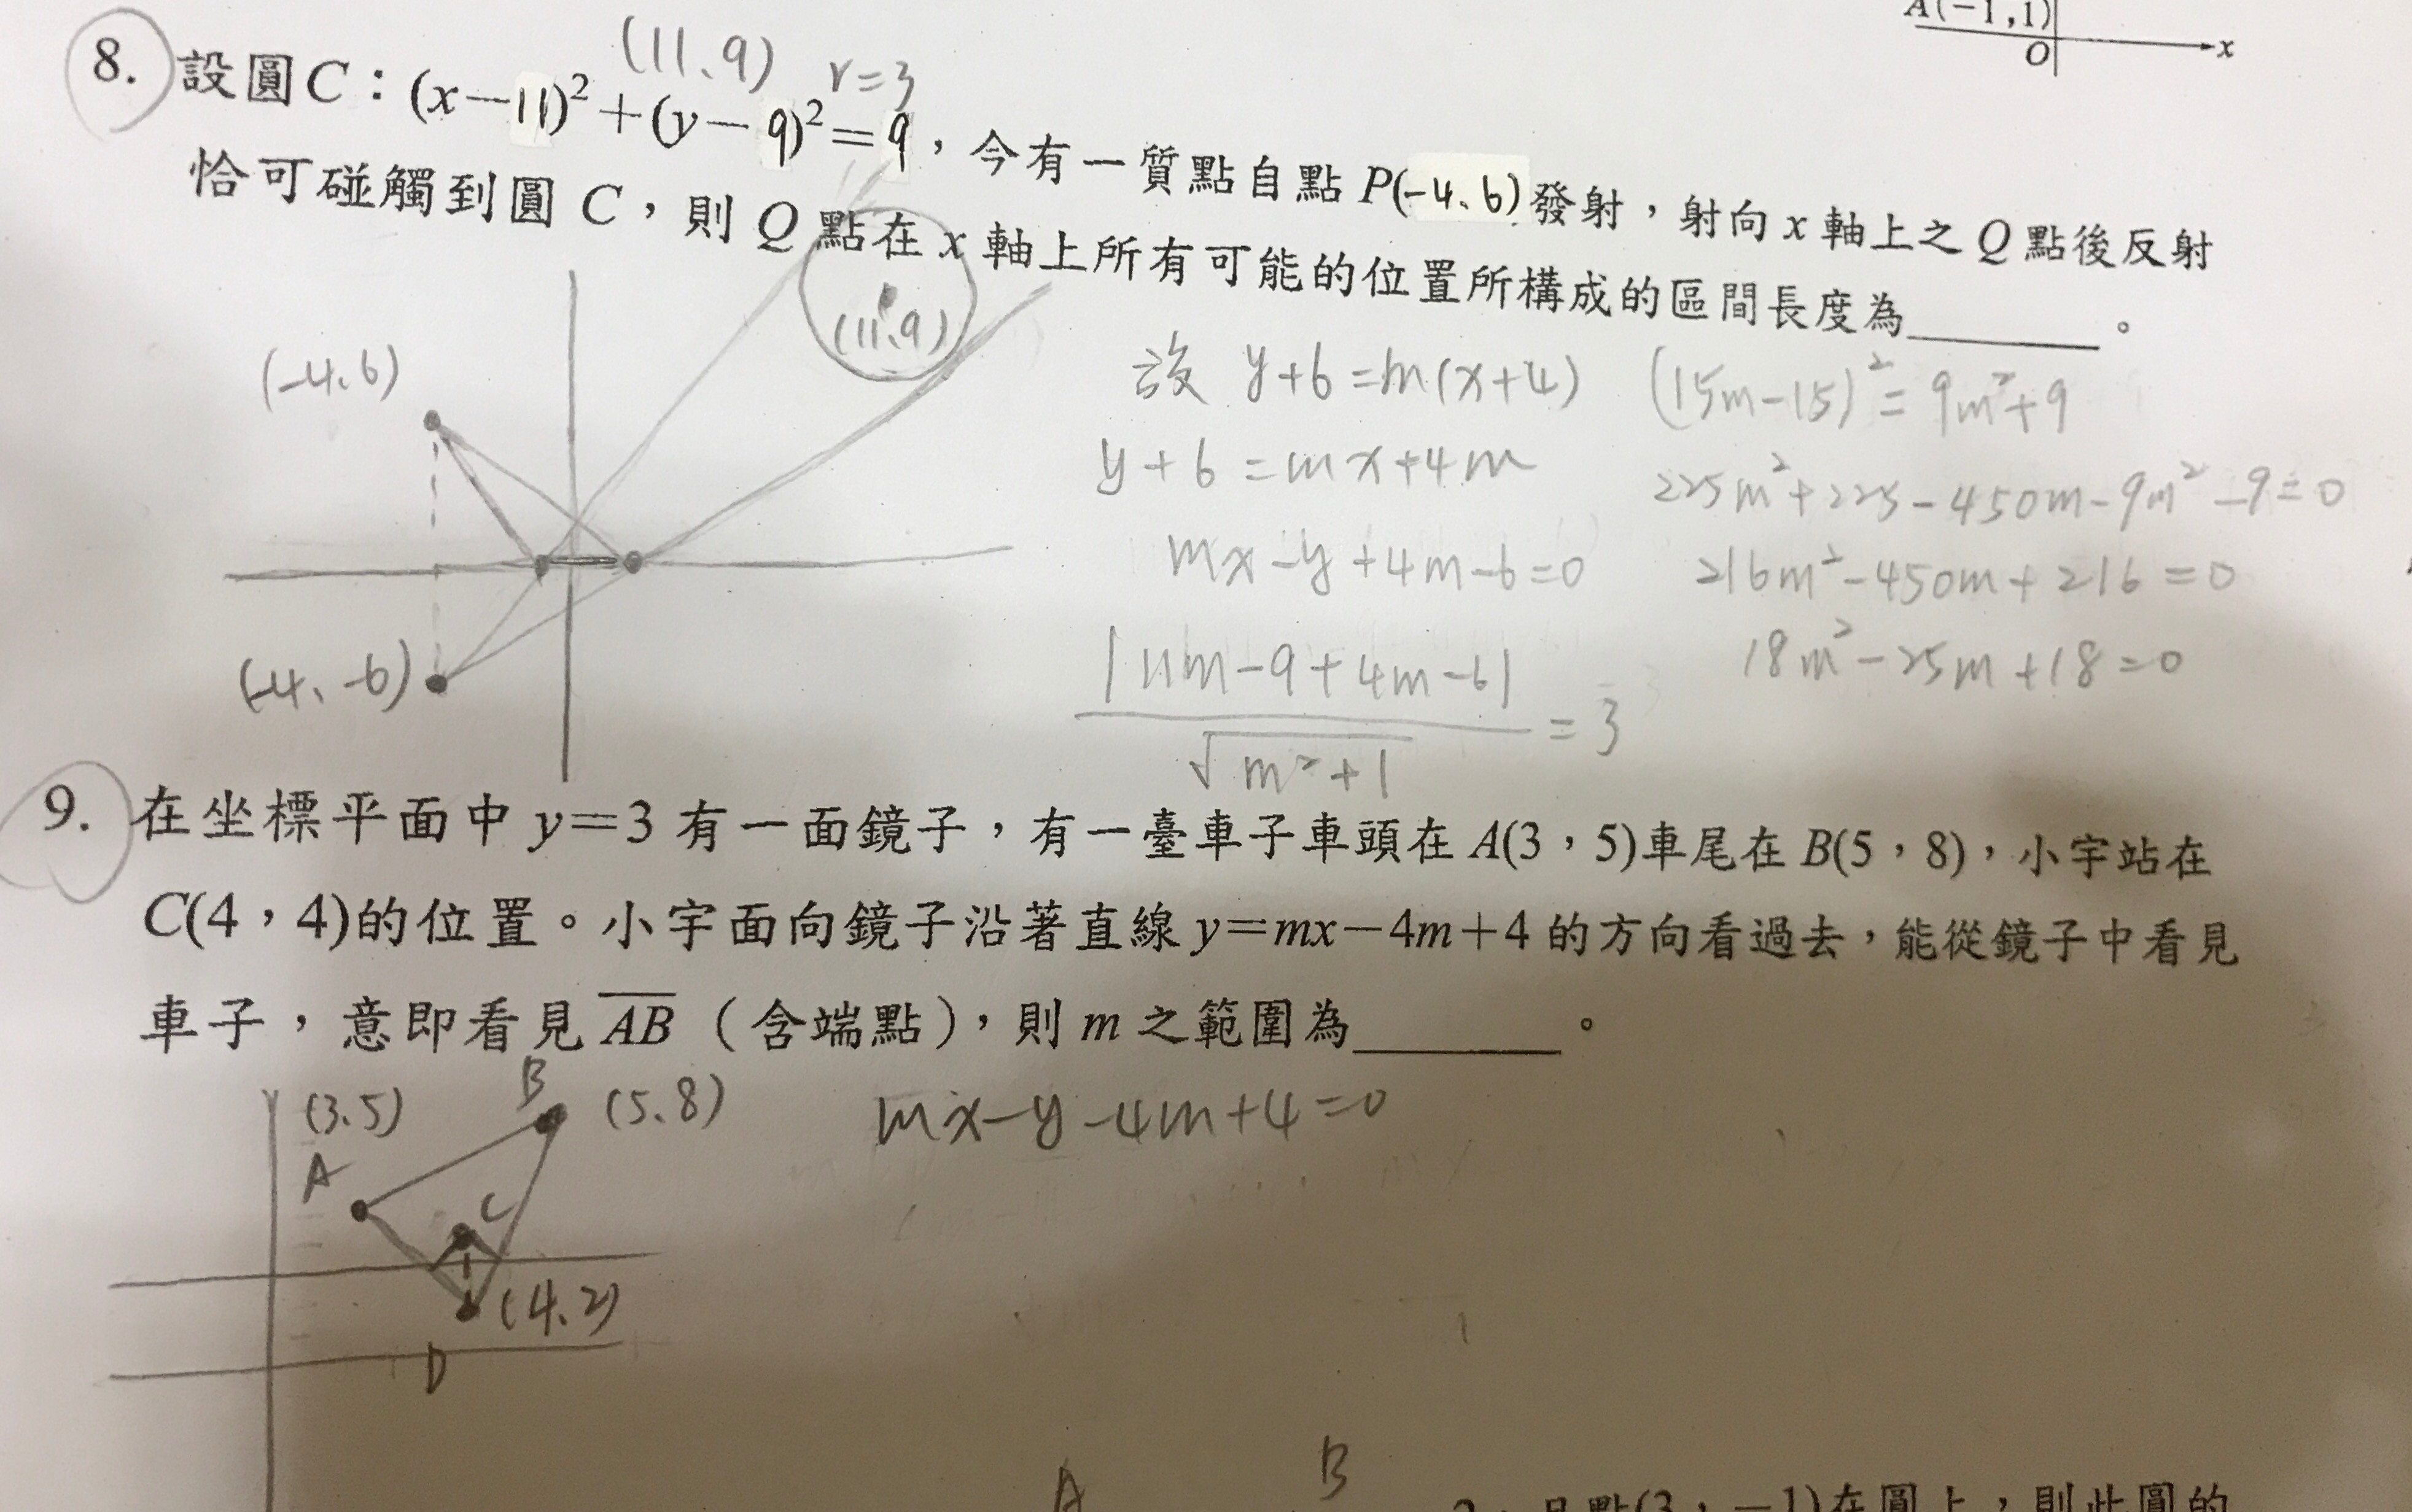 A(-1,1)
O
x
(11、9) r=3
8. 設圓C：(x-11)²+(y-9)²=9，今有一質點自點P(-4、6)發射，射向x軸上之Q點後反射
恰可碰觸到圓C，則Q點在x軸上所有可能的位置所構成的區間長度為______。
(11、9)
(-4、6)
(-4、-6)
設 y+6=m(x+4)
y+6=mx+4m
mx-y+4m-6=0
|11m-9+4m-6|
√m²+1
=3
(15m-15)²=9m²+9
225m²+225-450m-9m²-9=0
216m²-450m+216=0
18m²-25m+18=0
9. 在坐標平面中y=3有一面鏡子，有一臺車子車頭在A(3，5)車尾在B(5，8)，小宇站在
C(4，4)的位置。小宇面向鏡子沿著直線y=mx-4m+4的方向看過去，能從鏡子中看見
車子，意即看見AB（含端點），則m之範圍為______。
(3、5)
B
(5、8)
mx-y-4m+4=0
A
C
(4、2)
D
A
B
2，且點(3，-1)在圓上，則此圓的